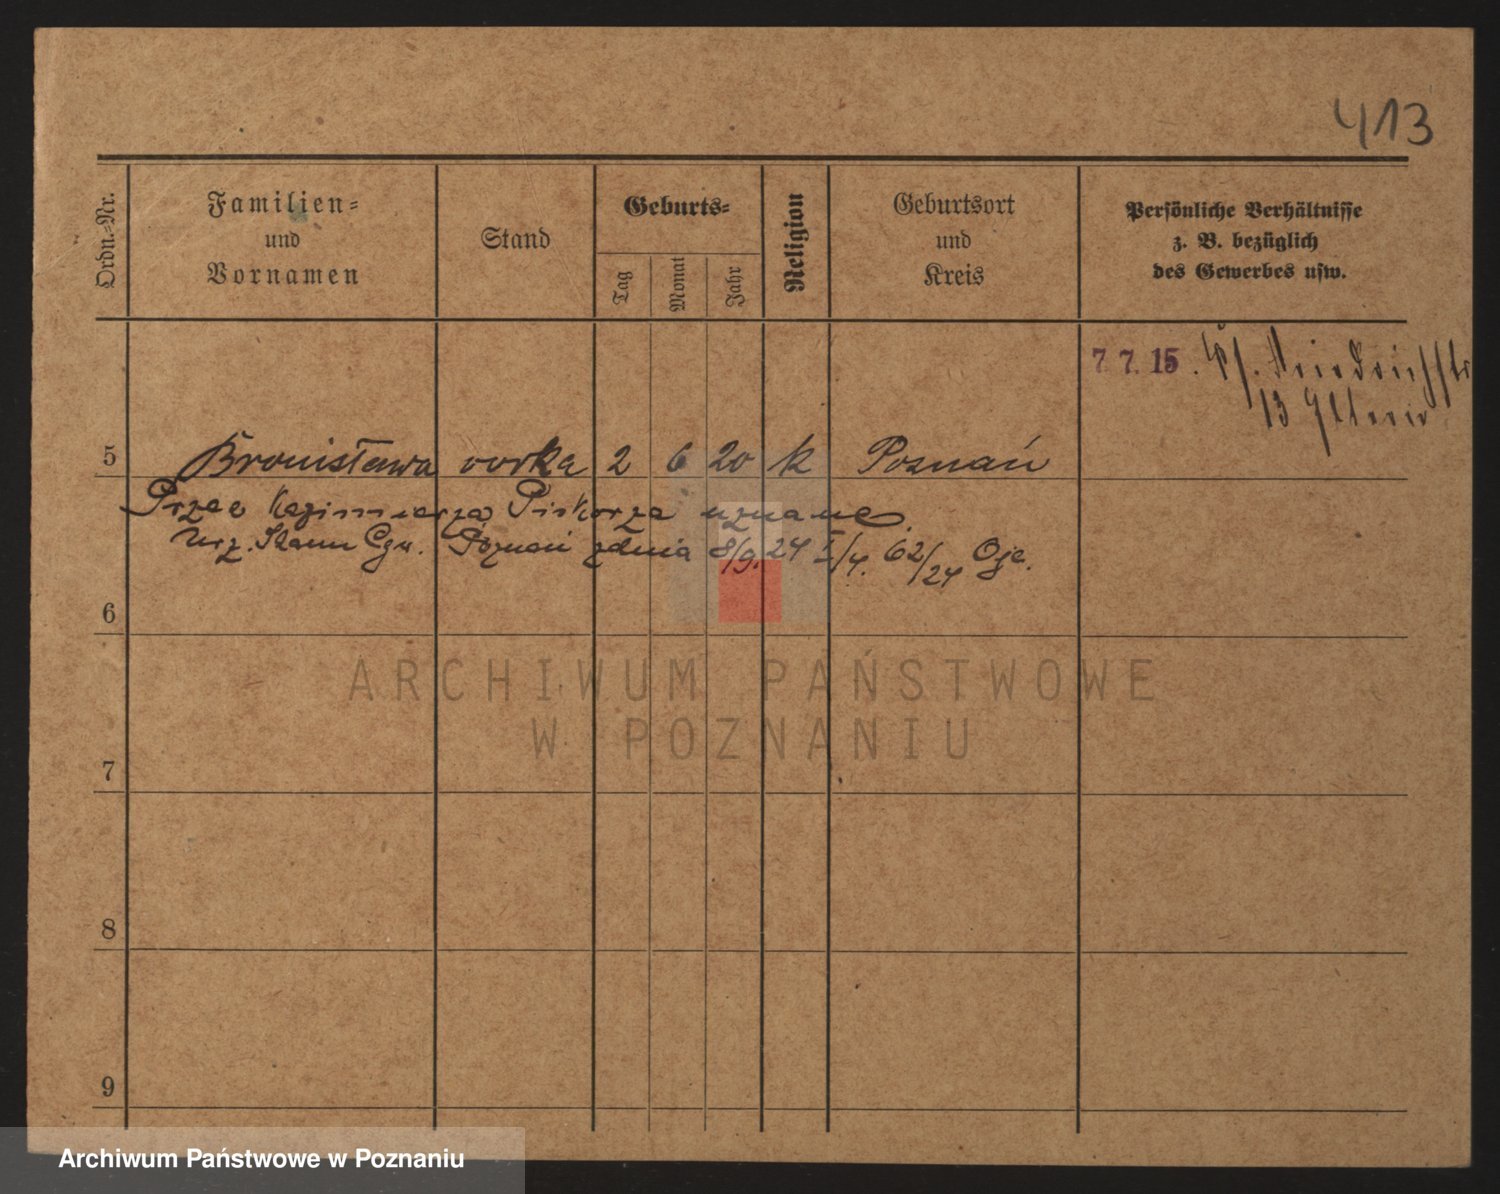 413
Ordn.-Nr.
Familien-
und
Vornamen
Stand
Geburts-
Tag
Monat
Jahr
Religion
Geburtsort
und
Kreis
Persönliche Verhältnisse
z. B. bezüglich
des Gewerbes usw.
7. 7. 15. Friedrichstr
13
5 Bronisława córka 2 6 20 k Poznań
Przez Kazimierza Piskorza uznane.
Urz. Stanu Cyw. Poznań zdnia 8/9. 24 I/4. 62/24
6
ARCHIWUM PAŃSTWOWE
W POZNANIU
7
8
9
Archiwum Państwowe w Poznaniu